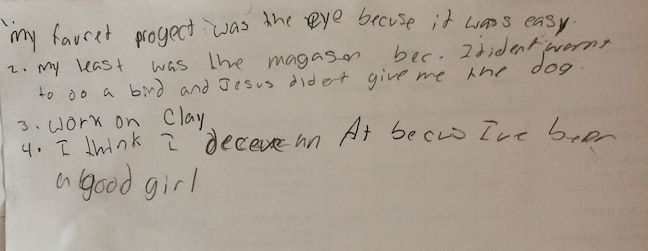 1. my favret proyect was the eye becuse it wass easy
2. my least was the magason bec. I dident wornt
to do a bird and Jesus didert give me the dog.
3. work on Clay
4. I think I deceve an At becus Ive been
a good girl